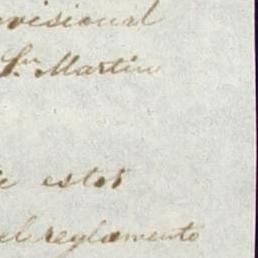 ovisional
Sn Martin
e estos
el reglamento